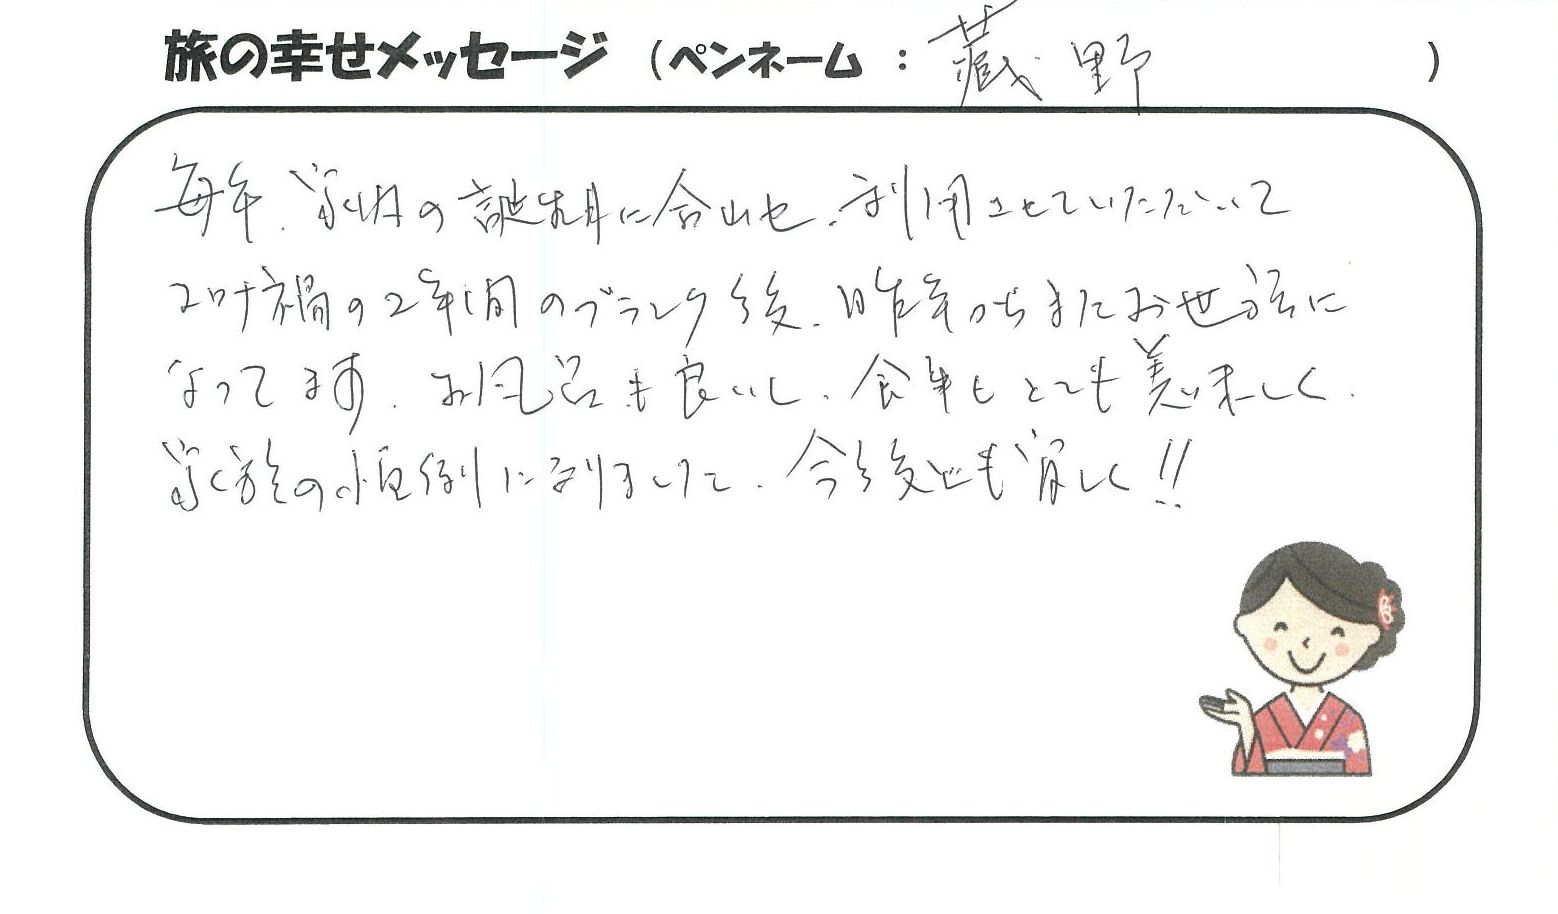 旅の幸せメッセージ （ペンネーム ： 蔵野 ）
毎年、家内の誕生月に合わせ、利用させていただいて
コロナ禍の2年間のブランク後、昨年からまたお世話に
なってます。お風呂も良いし、食事もとても美味しく、
家族の恒例になりまして、今後とも宜しく!!